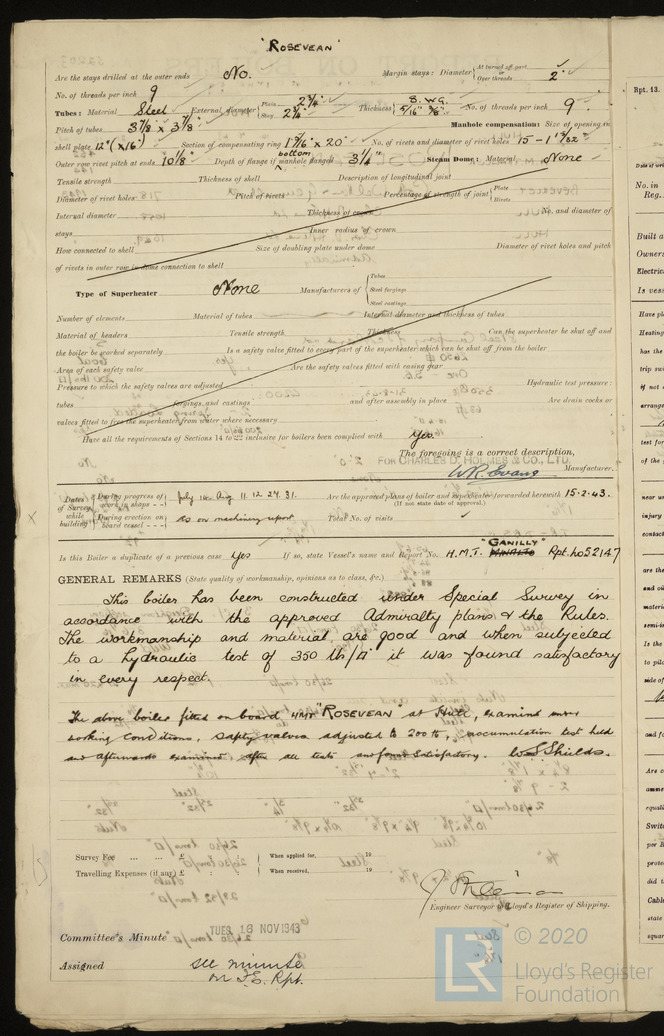 "ROSEVEAN"
Are the stays drilled at the outer ends No. Margin stays: Diameter { At turned off part, or Over threads 2"
No. of threads per inch 9
Tubes: Material Steel External diameter { Plain 2 3/4" Stay 2 3/4" Thickness { 8. W.G. 5/16" 3/8" No. of threads per inch 9
Pitch of tubes 3 7/8 x 3 7/8" Manhole compensation: Size of opening in
shell plate 12" (x16") Section of compensating ring x 20" No. of rivets and diameter of rivet holes 15 -
Outer row rivet pitch at ends 10 1/8" Depth of flange if manhole flanged bottom 3 1/4" Steam Dome: Material None
Tensile strength Thickness of shell Description of longitudinal joint
Diameter of rivet holes Pitch of rivets Percentage of strength of joint { Plate Rivets
Internal diameter Thickness of crown No. and diameter of
stays Inner radius of crown
How connected to shell Size of doubling plate under dome Diameter of rivet holes and pitch
of rivets in outer row in dome connection to shell
Type of Superheater None Manufacturers of { Tubes Steel forgings Steel castings
Number of elements Material of tubes Internal diameter and thickness of tubes
Material of headers Tensile strength Thickness Can the superheater be shut off and
the boiler be worked separately Is a safety valve fitted to every part of the superheater which can be shut off from the boiler
Area of each safety valve Are the safety valves fitted with easing gear
Pressure to which the safety valves are adjusted Hydraulic test pressure:
tubes forgings and castings and after assembly in place Are drain cocks or
valves fitted to free the superheater from water where necessary
Have all the requirements of Sections 14 to 22 inclusive for boilers been complied with Yes.
The foregoing is a correct description,
FOR CHARLES D. HOLMES & CO., LTD.
W.R. Evans Manufacturer.
Dates of Survey while building { During progress of work in shops - - July 14. Aug. 11. 12. 27. 31. Are the approved plans of boiler and superheater forwarded herewith 15.2.43.
(If not state date of approval.)
{ During erection on board vessel - - - As on machinery report Total No. of visits
Is this Boiler a duplicate of a previous case Yes If so, state Vessel's name and Report No. H.M.T. "GANILLY" Rpt. No 52147
GENERAL REMARKS (State quality of workmanship, opinions as to class, &c.)
This boiler has been constructed under Special Survey in
accordance with the approved Admiralty plans & the Rules.
The workmanship and material are good and when subjected
to a hydraulic test of 350 lbs/□" it was found satisfactory
in every respect.
The above boiler fitted on board HMT "ROSEVEAN" at Hull, examined under
working conditions, safety valves adjusted to 200 lb, accumulation test held
and afterwards examined after all tests and found satisfactory. W.S. Shields.
Survey Fee ... ... £ : : { When applied for, 19
Travelling Expenses (if any) £ : : { When received, 19
Engineer Surveyor to Lloyd's Register of Shipping.
Committee's Minute TUES. 16 NOV 1943
Assigned See minute
on F.E. Rpt.
© 2020
Lloyd's Register
Foundation
Rpt. 13.
No. in
Reg.
Built a
Owners
Electric
Is vess